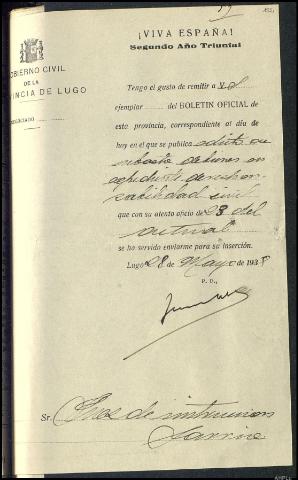 ¡VIVA ESPAÑA!
Segundo Año Triunfal
GOBIERNO CIVIL
DE LA
PROVINCIA DE LUGO
NEGOCIADO
Tengo el gusto de remitir a Vd
ejemplar del BOLETIN OFICIAL de
esta provincia, correspondiente al día de
hoy en el que se publica edicto su
basta de bienes en
expediente de respon
sabilidad civil
que con su atento oficio de 23 del
actual
se ha servido enviarme para su inserción.
Lugo 28 de Mayo de 1938
P. D.,
Sr. Juez de instruccion
Sarria